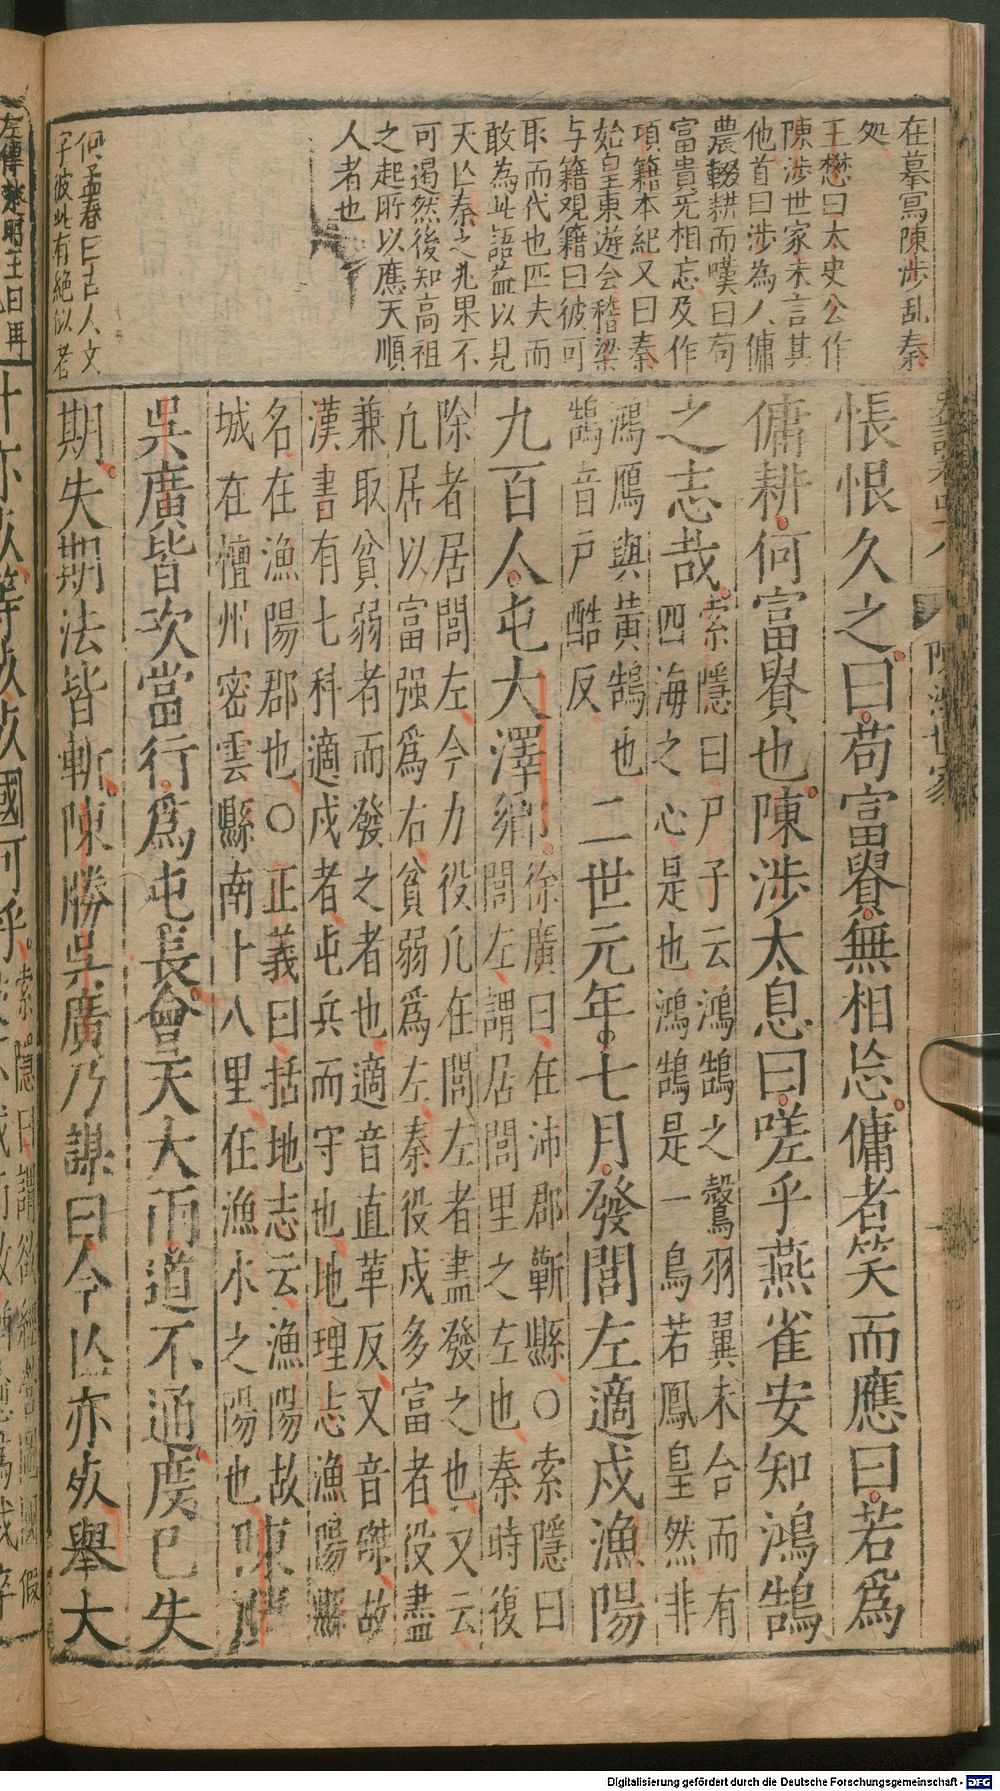 在摹寫陳涉亂秦
処
王懋曰太史公作
陳涉世家未言其
他首曰涉為人傭
農輟耕而嘆曰苟
富貴旡相忘及作
項籍本紀又曰秦
始皇東遊会稽梁
与籍观籍曰彼可
取而代也匹夫而
敢為此語益以見
天亾秦之兆果不
可遏然後知高祖
之起所以應天順
人者也
何孟春曰古人文
子彼此有絕似者
悵恨久之曰苟富貴無相忘傭者笑而應曰若爲
傭耕何富貴也陳涉太息曰嗟乎燕雀安知鴻鵠
之志哉
索隱曰尸子云鴻鵠之鷇羽翼未合而有
四海之心是也鴻鵠是一鳥若鳳皇然非
鴻鴈與黃鵠也
鵠音戸酷反
二世元年七月發閭左適戍漁陽
九百人屯大澤鄉
徐廣曰在沛郡蘄縣○索隱曰
閭左謂居閭里之左也秦時復
除者居閭左今力役凡在閭左者盡發之也又云
凡居以富强爲右貧弱爲左秦役戍多富者役盡
兼取貧弱者而發之者也適音直革反又音磔故
漢書有七科適戍者屯兵而守也地理志漁陽縣
名在漁陽郡也○正義曰括地志云漁陽故
城在檀州密雲縣南十八里在漁水之陽也
陳勝
吳廣皆次當行爲屯長會天大雨道不通度已失
期失期法皆斬陳勝吳廣乃謀曰今亾亦死舉大
左傳楚昭王曰再
計亦死等死死國可乎
陳涉世家
一
Digitalisierung gefördert durch die Deutsche Forschungsgemeinschaft - DFG